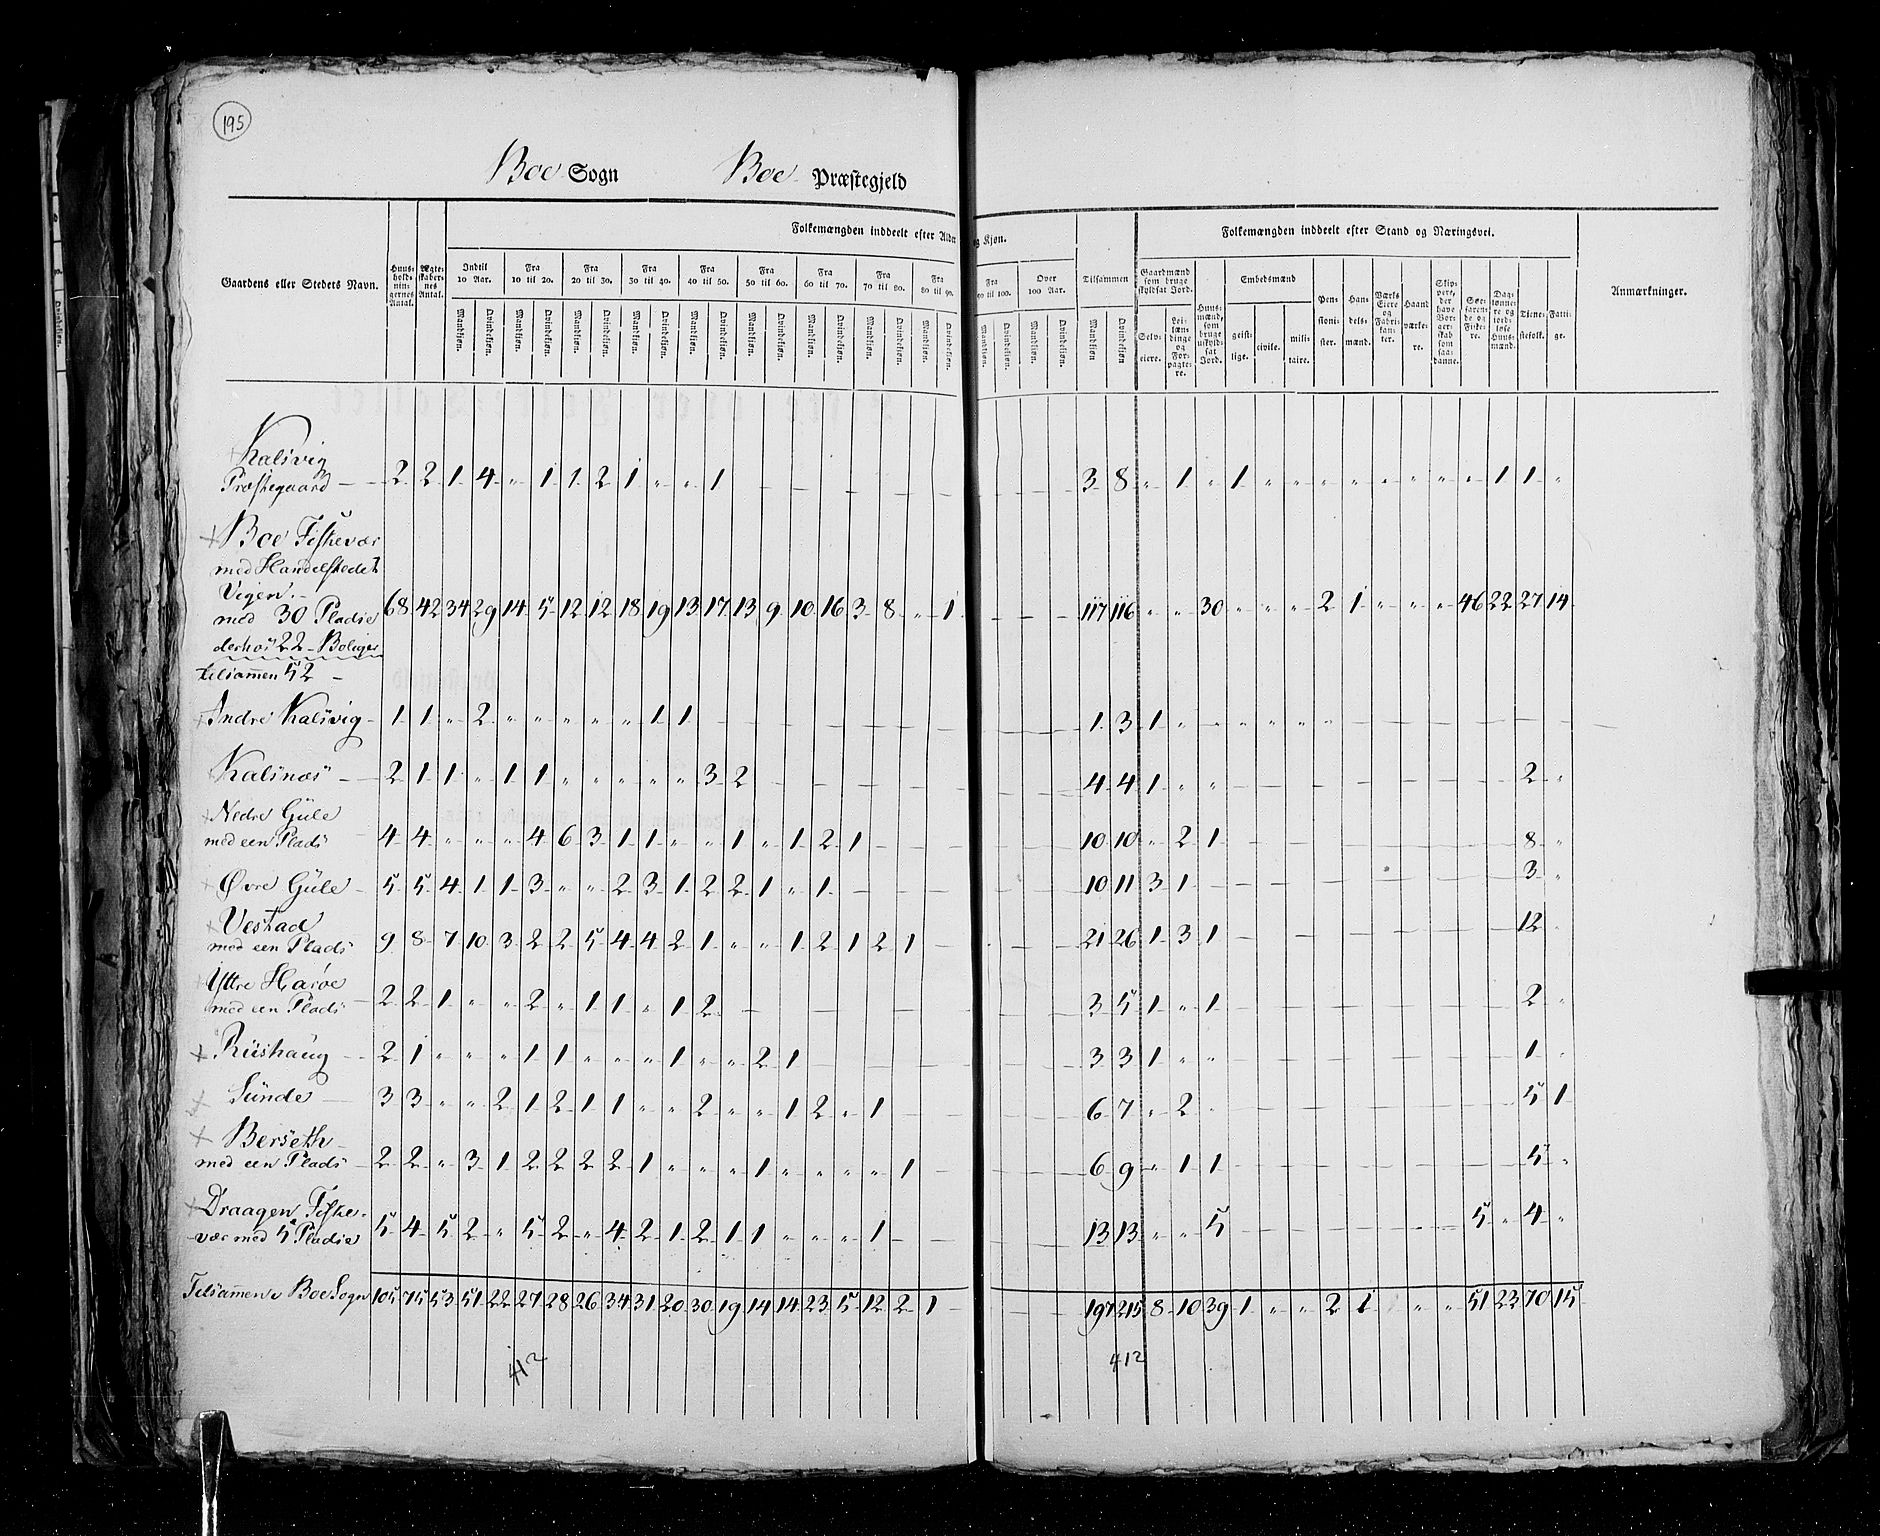 195
Boe Sogn Boe Præstegjeld
Gaardens eller Stedets Navn. Huus-holdnin-gernes Antal. Ægte-skaber-nes Antal. Folkemængden inddeelt efter Alder og Kjøn. Tilsammen Folkemængden inddeelt efter Stand og Næringsvei. Anmærkninger.
Indtil 10 Aar. Fra 10 til 20. Fra 20 til 30. Fra 30 til 40. Fra 40 til 50. Fra 50 til 60. Fra 60 til 70. Fra 70 til 80. Fra 80 til 90. Fra 90 til 100. Over 100 Aar. Gaardmænd som bruge skyldsat Jord. Huus-mænd, som bruge uskyld-sat Jord. Embedsmænd Pen-sioni-ster. Han-dels-mænd. Værks Eiere og Fabri-kan-ter. Haand værke-re. Skip-pere, der have Bor-ger-skab som saa-danne. Søe-farende og Fiske-re. Dag-lønne-re og jord-løse Huus-mænd. Tiene-stefolk. Fatti-ge.
Mandkjøn. Qvindekjøn. Mandkjøn. Qvindekjøn. Mandkjøn. Qvindekjøn. Mandkjøn. Qvindekjøn. Mandkjøn. Qvindekjøn. Mandkjøn. Qvindekjøn. Mandkjøn. Qvindekjøn. Mandkjøn. Qvindekjøn. Mandkjøn. Qvindekjøn. Mandkjøn. Qvindekjøn. Mandkjøn. Qvindekjøn. Mandkjøn Qvindekjøn Selv-eiere. Lei-læn-dinge og For-pagte-re. geist-lige. civile. mili-taire.
Kalsvig
Præstegaard - 2 2 1 4 " 1 1 2 1 " " 1 - - - - - - 3 8 " 1 " 1 " " " " " " " " 1 1 "
Boe Fiskevær
med Handelstedet
Vigen -
med 30 Pladse 68 42 34 29 14 5 12 12 18 19 13 17 13 9 10 16 3 8 " 1 - - - 117 116 " " 30 " " " 2 1 " " " 46 22 27 14
derhos 22 Boliger
tilsammen 52 -
Indre Kalsvig - 1 1 " 2 " " " " " 1 1 - - - - - - 1 3 1 " " " " " "
Kalsnæs - 2 1 1 " 1 1 " " " " " 3 2 - - - - - 4 4 1 " " - - - 2 "
Nedre Güle
med een Plads 4 4 " " " 4 6 3 1 1 " " 1 " 1 2 1 - - - 10 10 " 2 1 - - - 8 "
Øvre Güle - 5 5 4 1 1 3 " " 2 3 1 2 2 1 " 1 - - - 10 11 3 1 - - - 3 "
Vestad
med een Plads 9 8 7 10 3 2 2 5 4 4 2 1 " " 1 2 1 2 1 - - - 21 26 1 3 1 - - - 12 "
Yttre Harøe
med een Plads - 2 2 1 " " 2 " 1 1 " 1 2 - - - - 3 5 1 " 1 - - - 2 "
Rüshaug - 2 1 " " " 1 1 " " " 1 " " 2 1 - - - 3 3 1 " " - - - 1 "
Sünde - 3 3 " " 2 1 2 1 1 " " 2 " " 1 2 " 1 - - - 6 7 " 2 " - - - 5 1
Berseth -
med een Plads - 2 2 " 3 1 2 2 2 2 1 " " " 1 " " " " 1 - - 6 9 " 1 1 - - - 5 "
Draagen Fiske-
vær med 5 Pladse 5 4 5 2 " 5 2 " 4 2 1 2 1 1 " " " 1 - - - 13 13 " " 5 - - - 5 " 4 "
Tilsammen Boe Sogn 105 75 53 51 22 27 28 26 34 31 20 30 19 14 14 23 5 12 2 1 - - - 197 215 8 10 39 1 " " 2 1 " " 51 23 70 15
412 412